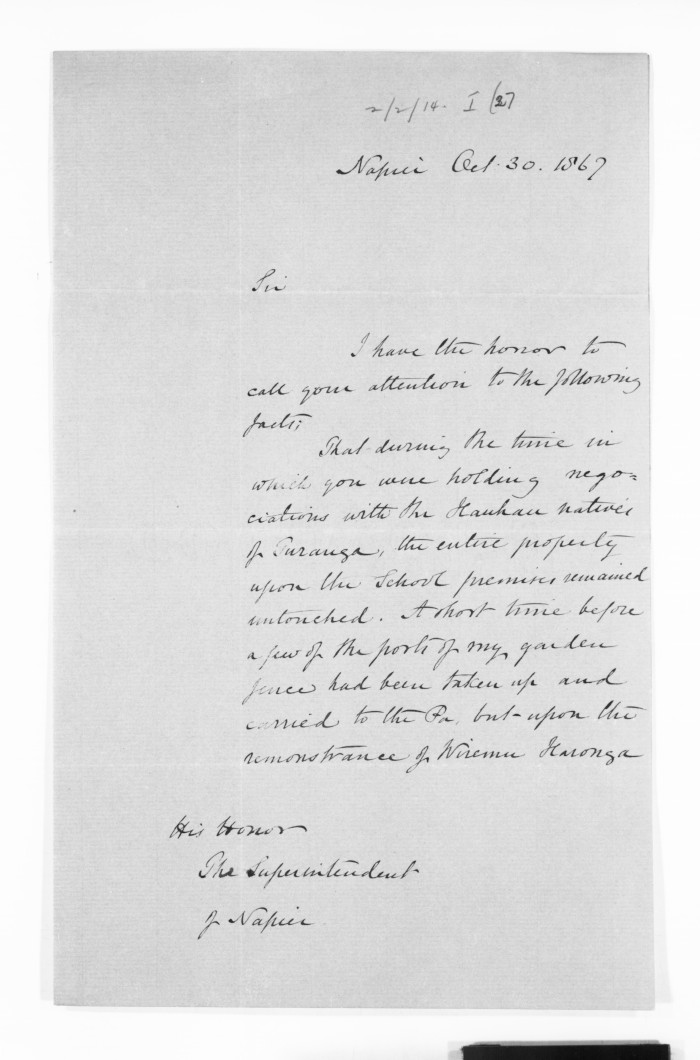 2/2/14. I (27)
Napier Oct. 30. 1867
Sir
I have the honor to
call your attention to the following
facts;
That during the time in
which you were holding nego=
ciations with the Hauhau natives
of Turanga, the entire property
upon the School premises remained
untouched. A short time before
a few of the posts of my garden
fence had been taken up and
carried to the Pa, but upon the
remonstrance of Wiremu Haronga
His Honor
The Superintendent
of Napier